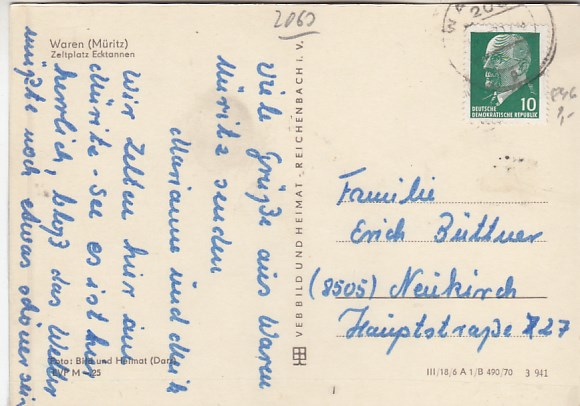 Waren (Müritz)
Zeltplatz Ecktannen
2063
Viele Grüße aus Waren
Müritz senden
Marianne und
Wir zelten hier am
Müritz-See es ist hier
herrlich, bloß das Wetter
müßte noch etwas schöner sein
Foto: Bild und Heimat
EVP M -,25
VEB BILD UND HEIMAT · REICHENBACH I. V.
20
10
DEUTSCHE
DEMOKRATISCHE REPUBLIK
846
Familie
Erich Büttner
(8505) Neukirch
Hauptstraße 127
III/18/6 A 1/B 490/70 3 941